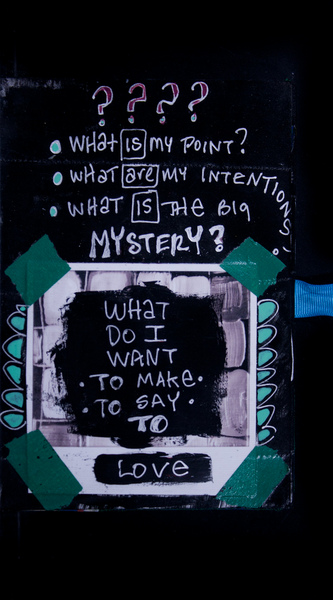 ? ? ? ?
• WHAT IS MY POINT?
• WHAT are MY INTENTIONS?
• WHAT IS THE BIG
MYSTERY?
WHAT
DO I
WANT
• TO MAKE •
• TO SAY •
TO
LOVE